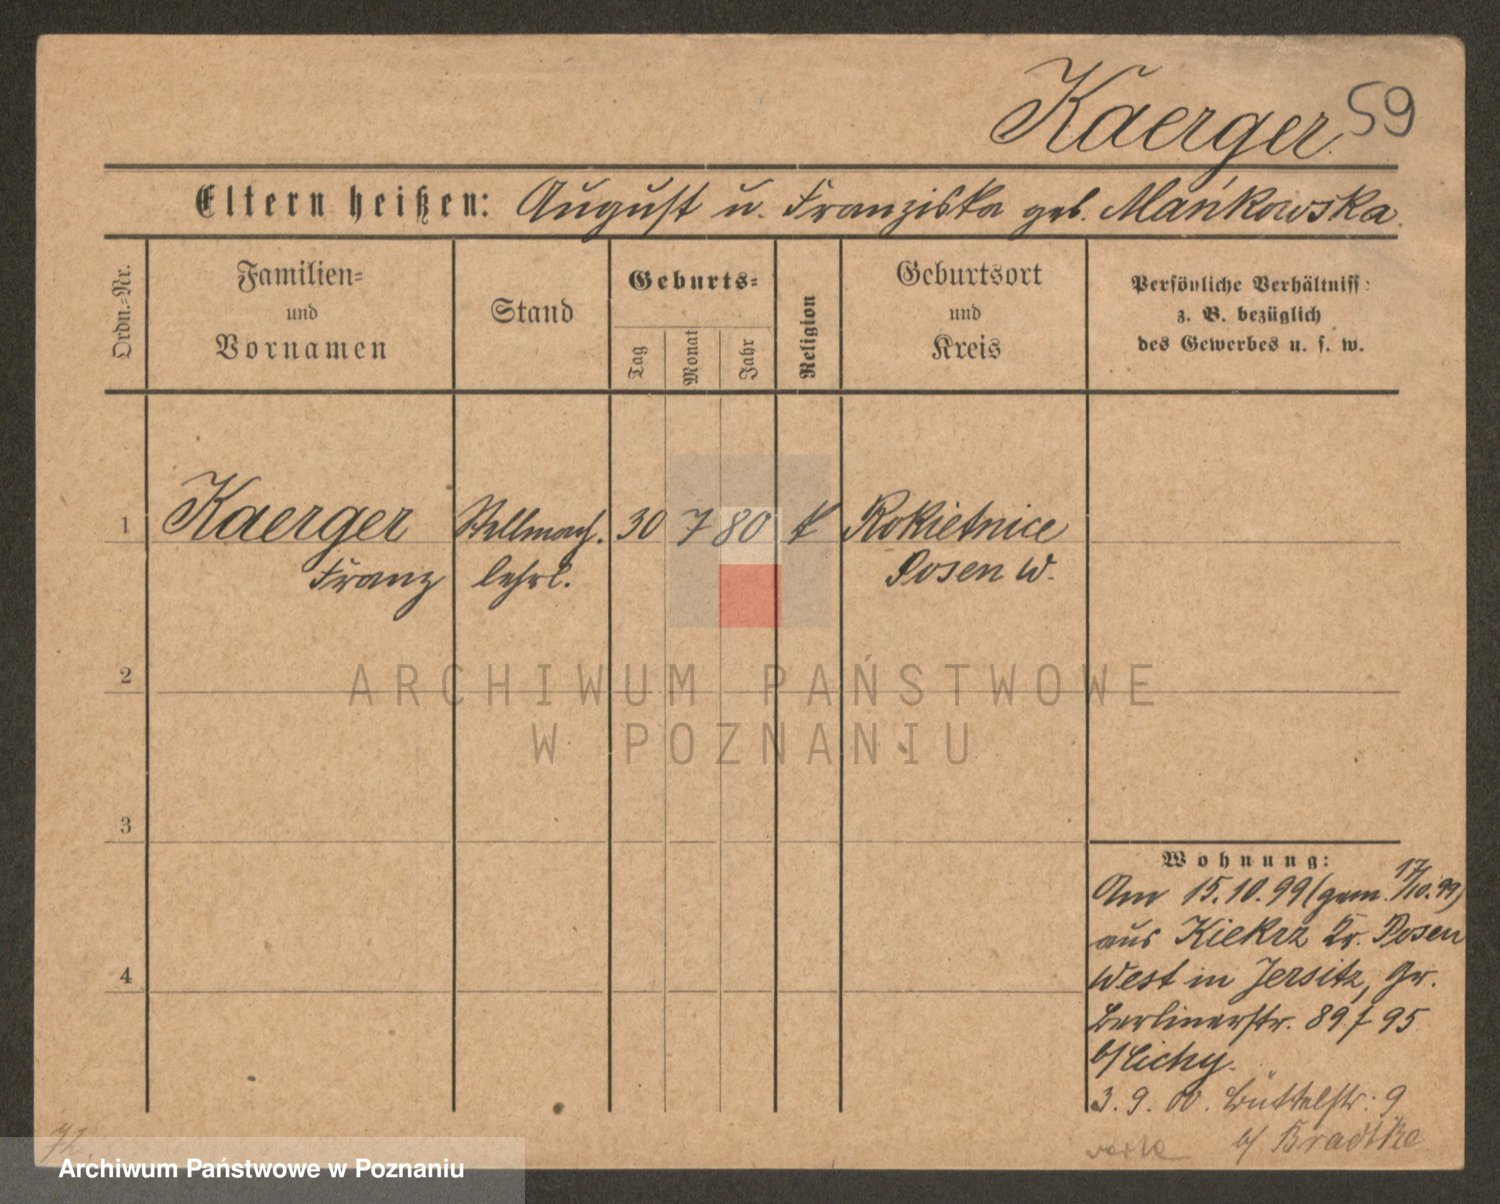 Kaerger. 59
Eltern heißen: August u. Franziska geb. Mańkowska.
Ordn.-Nr.
Familien-
und
Vornamen
Stand
Geburts-
Tag
Monat
Jahr
Religion
Geburtsort
und
Kreis
Persönliche Verhältniss
z. B. bezüglich
des Gewerbes u. s. w.
1 Kaerger Stellmach. 30 7 80 k Rokietnice
Franz lehrl. Posen W.
2
3
4
ARCHIWUM PAŃSTWOWE
W POZNANIU
Wohnung:
Am 15.10.99 (gem. 17/10.99)
aus Kiekrz Kr. Posen
West in Jersitz, Gr.
Berlinerstr. 89 / 95
b/ Cichy.
3. 9. 00. Büttelstr: 9
b/. Bradtke
Archiwum Państwowe w Poznaniu